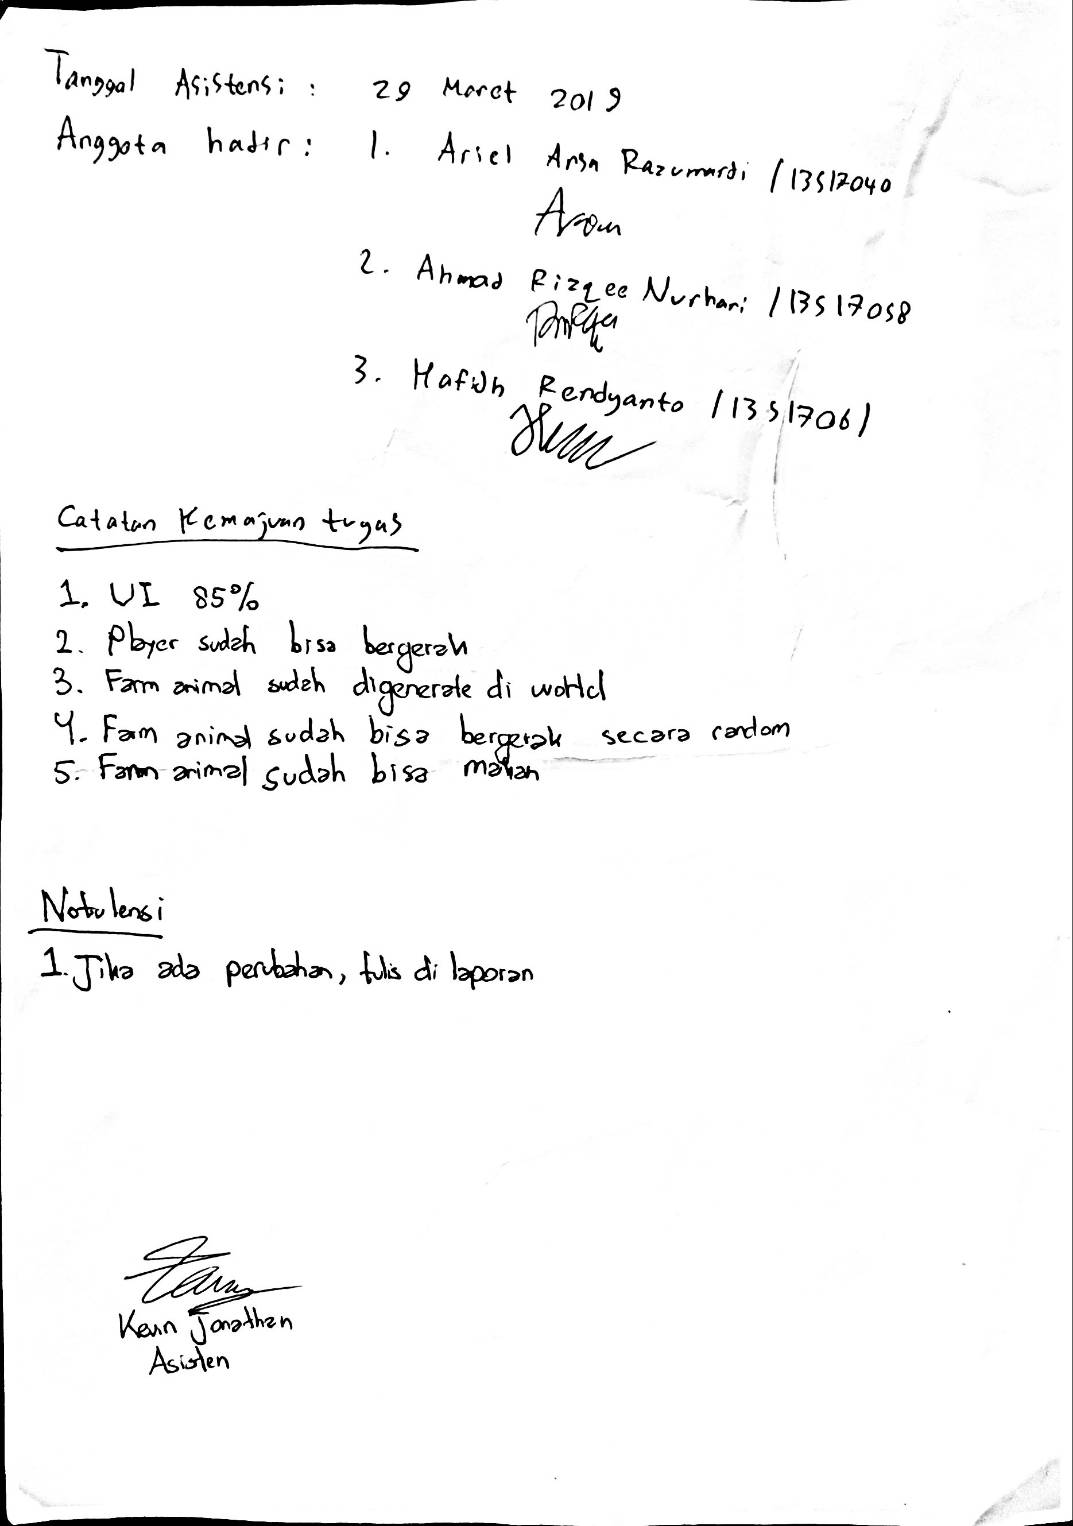 Tanggal Asistensi : 29 Maret 2019
Anggota hadir : 1. Ariel Ansa Razumardi / 13517040
2. Ahmad Rizqee Nurhani / 13517058
3. Hafidh Rendyanto / 13517061
Catatan Kemajuan tugas
1. UI 85%
2. Player sudah bisa bergerak
3. Farm animal sudah digenerate di world
4. Farm animal sudah bisa bergerak secara random
5. Farm animal sudah bisa makan
Notulensi
1. Jika ada perubahan, tulis di laporan
Kevin Jonathan
Asisten